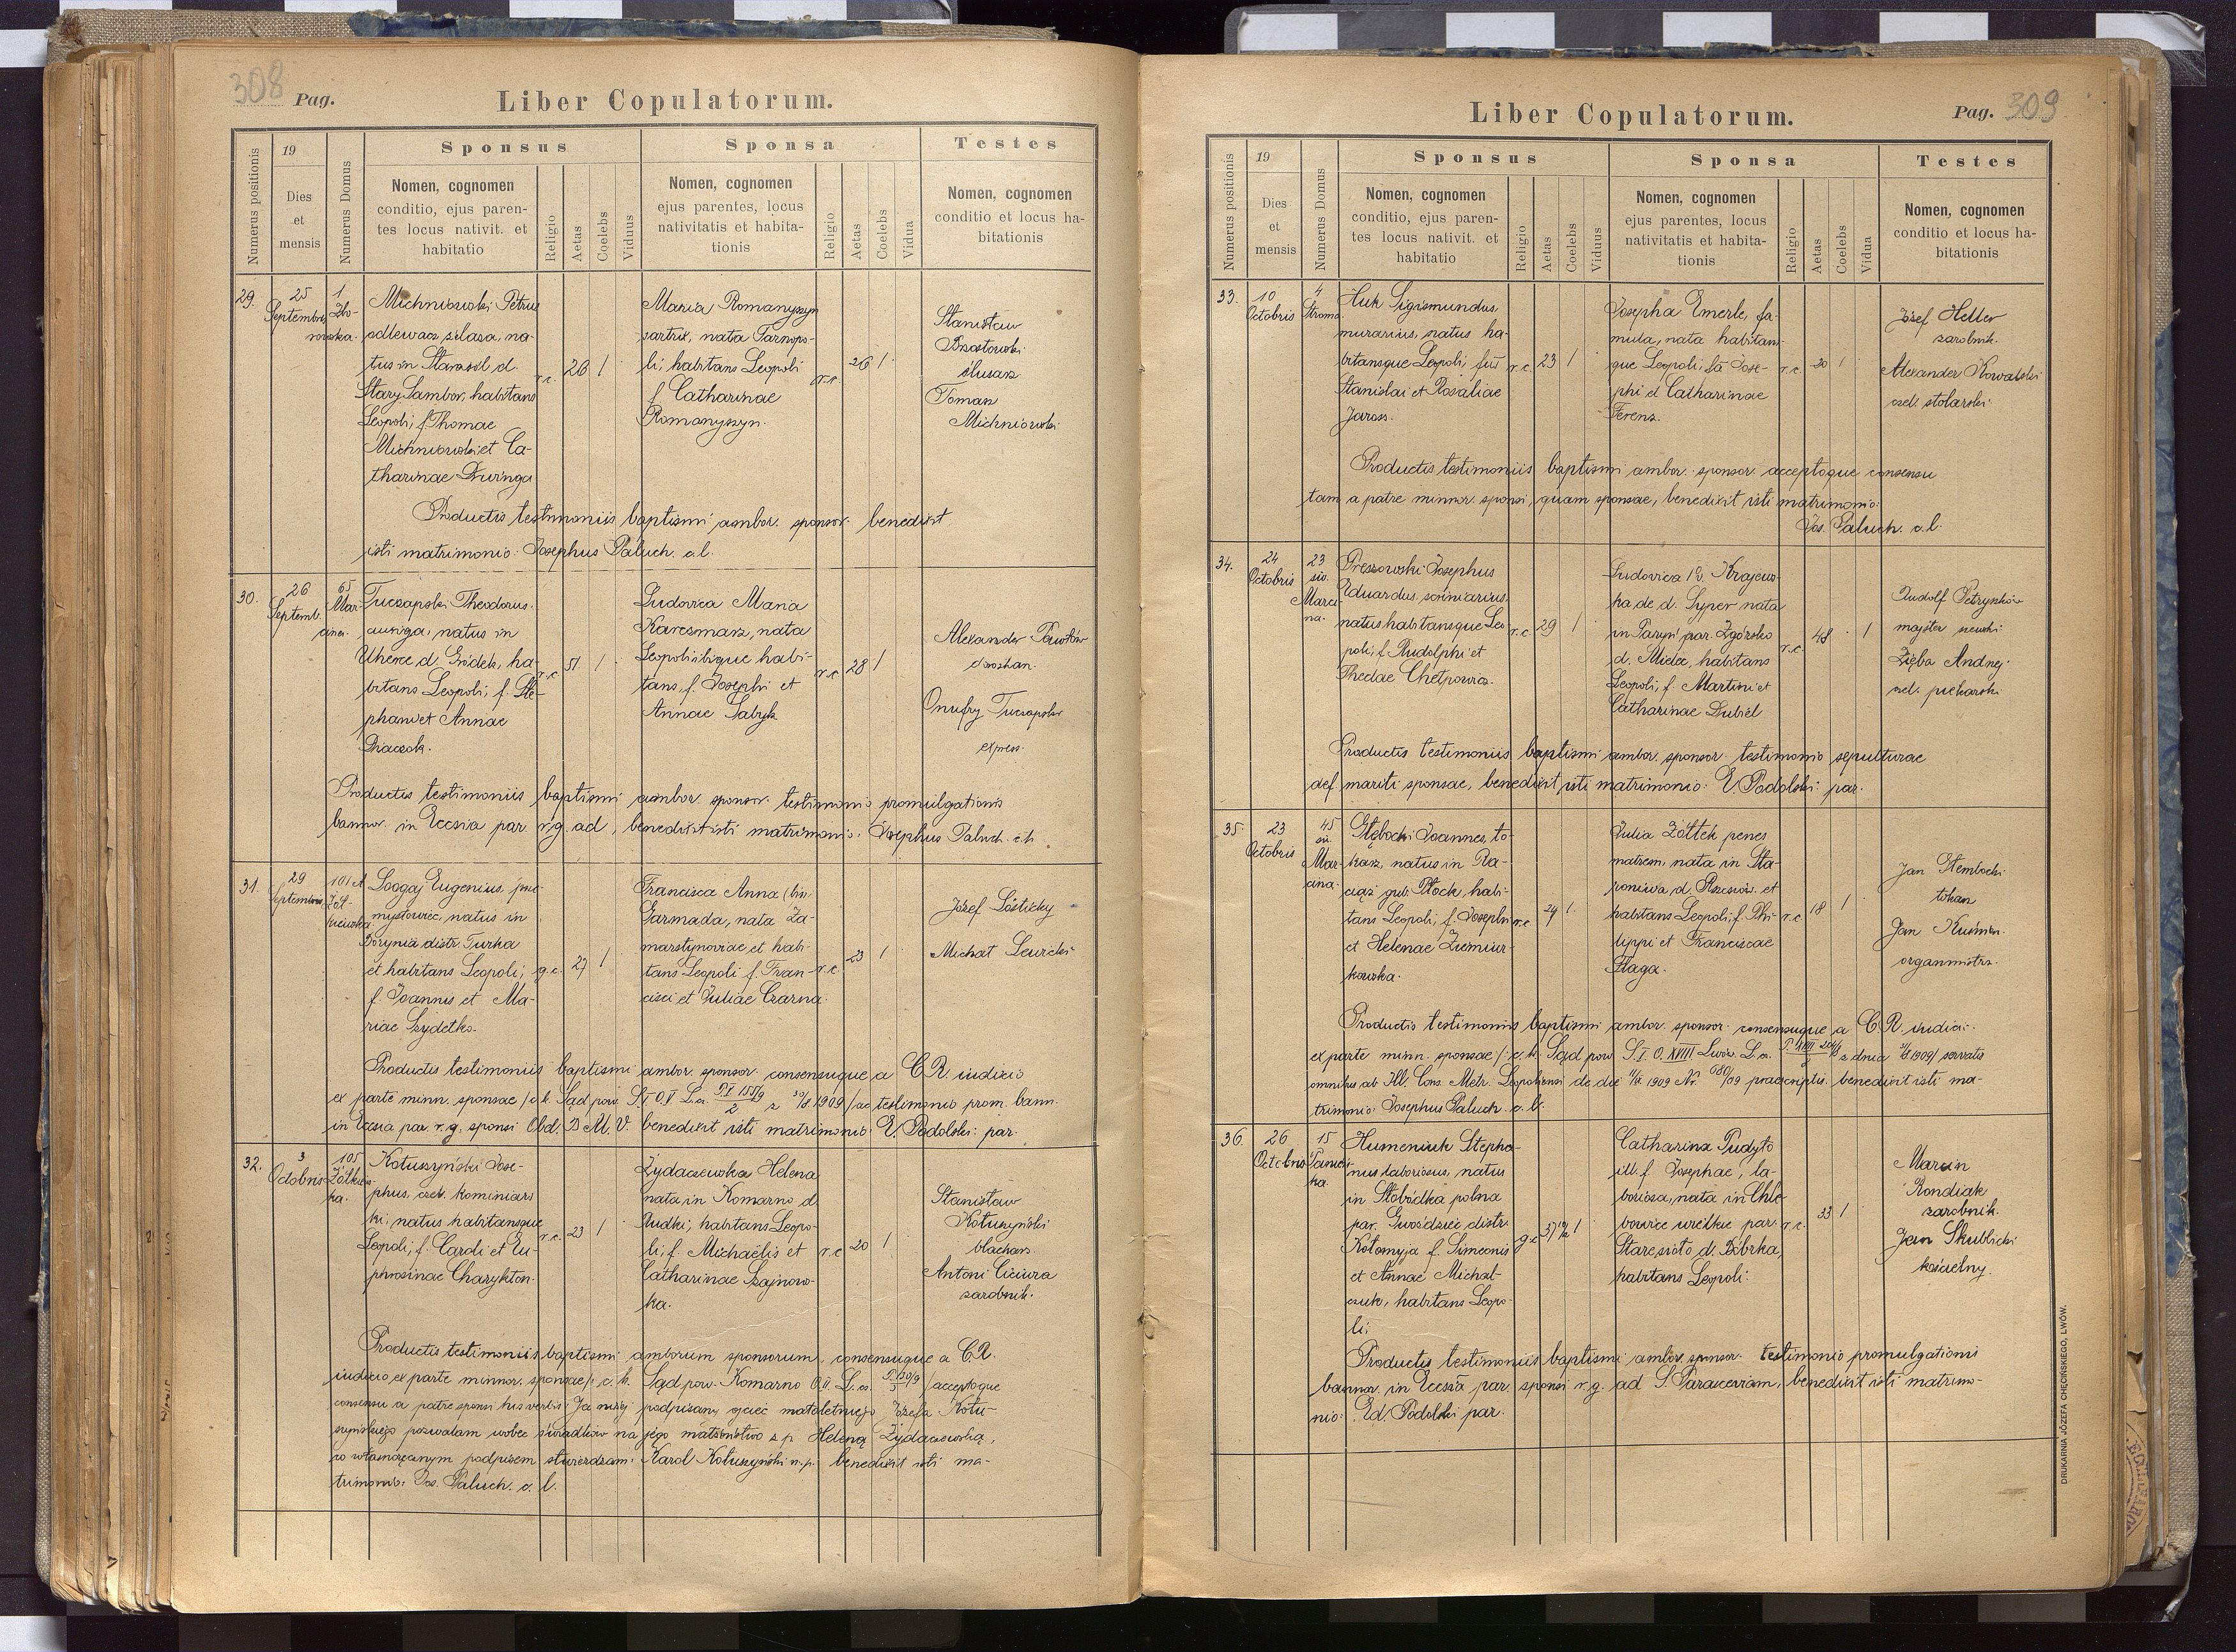 308 Pag.
Liber Copulatorum.
Numerus positionis
19
Dies
et
mensis
Numerus Domus
Sponsus
Nomen, cognomen
conditio, ejus paren-
tes locus nativit. et
habitatio
Religio
Aetas
Coelebs
Viduus
Sponsa
Nomen, cognomen
ejus parentes, locus
nativitatis et habita-
tionis
Religio
Aetas
Coelebs
Vidua
Testes
Nomen, cognomen
conditio et locus ha-
bitationis
29.
25
Septembris
1
Zbo-
rowska.
Michniowski Petrus
odlewacz żelaza, na-
tus in Starasól d.
Stary Sambor, habitans
Leopoli, f. Thomae
Michniowski et Ca-
tharinae Duringa
r.c.
26
1
Maria Romanyszyn
sartrix, nata Tarnopo-
li, habitans Leopoli
f. Catharinae
Romanyszyn.
r.c.
26
1
Stanisław
Brzostowski
ślusarz
Tomasz
Michniowski
Productis testimoniis baptismi ambor. sponsor. benedixit
isti matrimonio: Josephus Paluch. c.l.
30.
26
Septemb.
65
Mar-
cina.
Tuczapski Theodorus.
auriga, natus in
Uherce d. Gródek, ha-
bitans Leopoli, f. Ste-
phani et Annae
r.c.
51.
1
Ludovica Maria
Karczmarz, nata
Leopoli ibique habi-
tans, f. Josephi et
Annae Sabyk
r.c.
28
1
Alexander Pawłów
Onufry Tuczapski
Productis testimoniis baptismi ambor. sponsor. testimonio promulgationis
bannor. in Eccsia par. r.g. ad, benedixit isti matrimonio: Josephus Paluch.
31.
29
Septembris
101 A
Żół-
kiewska
Eugenius prze-
mysłowiec, natus in
Borynia distr. Turka
et habitans Leopoli,
f. Joannis et Ma-
riae Szydełko.
g.c.
27
1
Francisca Anna
Garmada, nata Za-
marstynoviae et habi-
tans Leopoli f. Fran-
cisci et Juliae Czarna.
r.c.
23
1
Józef Lösticky
Michał Lewicki
Productis testimoniis baptismi ambor. sponsor. consensuque a C.R. iudicio
ex parte minn. sponsae /c.k. Sąd pow. S.I O.V L.cz. P.I 155/9 2 z 30/8 1909/ ac testimonio prom. bann.
in Eccsia par. r.g. sponsi Obd. B.M.V. benedixit isti matrimonio: E. Podolski: par.
32.
3
Octobris
105
Żółkiews-
ka.
Kotuszyński Jose-
phus, czel. kominiars
ki, natus habitansque
Leopoli, f. Caroli et Eu-
phrosinae Charykton.
r.c.
23
1
Żydaczewska Helena
nata in Komarno d.
Rudki, habitans Leopo-
li, f. Michaelis et
Catharinae Szajnow-
ka.
r.c
20
1
Stanisław
Kotuszyński
blacharz.
Antoni Ciciura
zarobnik.
Productis testimoniis baptismi amborum sponsorum, consensuque a C.R.
iudicio ex parte minnor. sponsae /: c.k. Sąd pow. Komarno O.II. L. cz. P. 130/9 5 / acceptoque
consensu a patre sponsi his verbis: Ja niżej podpisany ojciec małoletniego Józefa Kotu-
szyńskiego pozwalam wobec świadków na jego małżeństwo z p. Heleną Żydaczewską,
co własnoręcznym podpisem stwierdzam: Karol Kotuszyński m.p. benedixit isti ma-
trimonio: Jos. Paluch. c. l.
Liber Copulatorum.
Pag. 309
Numerus positionis
19
Dies
et
mensis
Numerus Domus
Sponsus
Nomen, cognomen
conditio, ejus paren-
tes locus nativit. et
habitatio
Religio
Aetas
Coelebs
Viduus
Sponsa
Nomen, cognomen
ejus parentes, locus
nativitatis et habita-
tionis
Religio
Aetas
Coelebs
Vidua
Testes
Nomen, cognomen
conditio et locus ha-
bitationis
33.
10
Octobris
4
Stroma
Huk Sigismundus
murarius, natus ha-
bitansque Leopoli, fil
Stanislai et Rosaliae
Jarosz.
r.c.
23
1
Josepha Emerle, fa-
mula, nata habitans-
que Leopoli, fa Jose-
phi et Catharinae
Ferenz.
r.c.
20
1
Józef Heller
zarobnik.
Alexander Kowalski
czel. stolarski.
Productis testimoniis baptismi ambor. sponsor. acceptoque consensu
tam a patre minnor. sponsi, quam sponsae, benedixit isti matrimonio:
Jos. Paluch. c.l.
34.
24
Octobris
23
św.
Marci-
na.
Preszowski Josephus
Eduardus, scriniarius,
natus habitansque Leo-
poli, f. Rudolphi et
Theclae Chełpowa.
r.c.
29
1
Ludovica 1° v. Krajews-
ka, de d. Syper nata
in Partyń par. Zgórsko
d. Mielec, habitans
Leopoli, f. Martini et
Catharinae Dubiel
r.c.
48
1
Rudolf Petrynków
majster szewski.
Zięba Andrzej.
czel. piekarski
Productis testimoniis baptismi ambor. sponsor. testimonio sepulturae
def. mariti sponsae, benedixit isti matrimonio: E. Podolski: par.
35.
23
Octobris
45
św.
Mar-
cina.
Głębocki Joannes, to-
karz, natus in Ra-
ciąż gub. Płock, habi-
tans Leopoli, f. Josephi
et Helenae Ziemiur-
kowska.
r.c.
24
1
Julia Żółtek penes
matrem, nata in Sta-
roniwa d. Rzeszów et
habitans Leopoli, f. Phi-
lippi et Franciscae
Płaga.
r.c
18
1
Jan Głembocki
tokarz
Jan Kuśmin.
organmistrz.
Productis testimoniis baptismi ambor. sponsor. consensuque a C.R. iudicio
ex parte minn. sponsae /: c. k. Sąd pow. S.I. O. XVIII Lwów. L. cz. z dnia 31/8 1909/ servatis
omnibus ab Ill. Cons. Metr. Leopoliensi de die 11/X 1909 Nr. 680/09 praescriptis. benedixit isti ma-
trimonio: Josephus Paluch. c. l.
36.
26
Octobris
15
Panień
ka.
Humeniuk Stepha-
nus laboriosus, natus
in Słobódka polna
par. Gwoździec distr.
Kołomyja f. Simeonis
et Annae Michal-
czuk, habitans Leopo-
li,
g.c
1
Catharina Pudyło
ill. f. Josephae, la-
boriosa, nata in Chle-
bowice wielkie par.
Staresioło d. Bóbrka,
habitans Leopoli:
r.c.
33
1
Marcin
Rondiak
zarobnik.
Jan Skublicki
kościelny.
Productis testimoniis baptismi ambor. sponsor. testimonio promulgationis
bannor. in Eccsia par. sponsi r.g. ad S. Parasceviam, benedixit isti matrimo-
nio: Ed. Podolski par.
DRUKARNIA JÓZEFA CHĘCIŃSKIEGO, LWÓW.